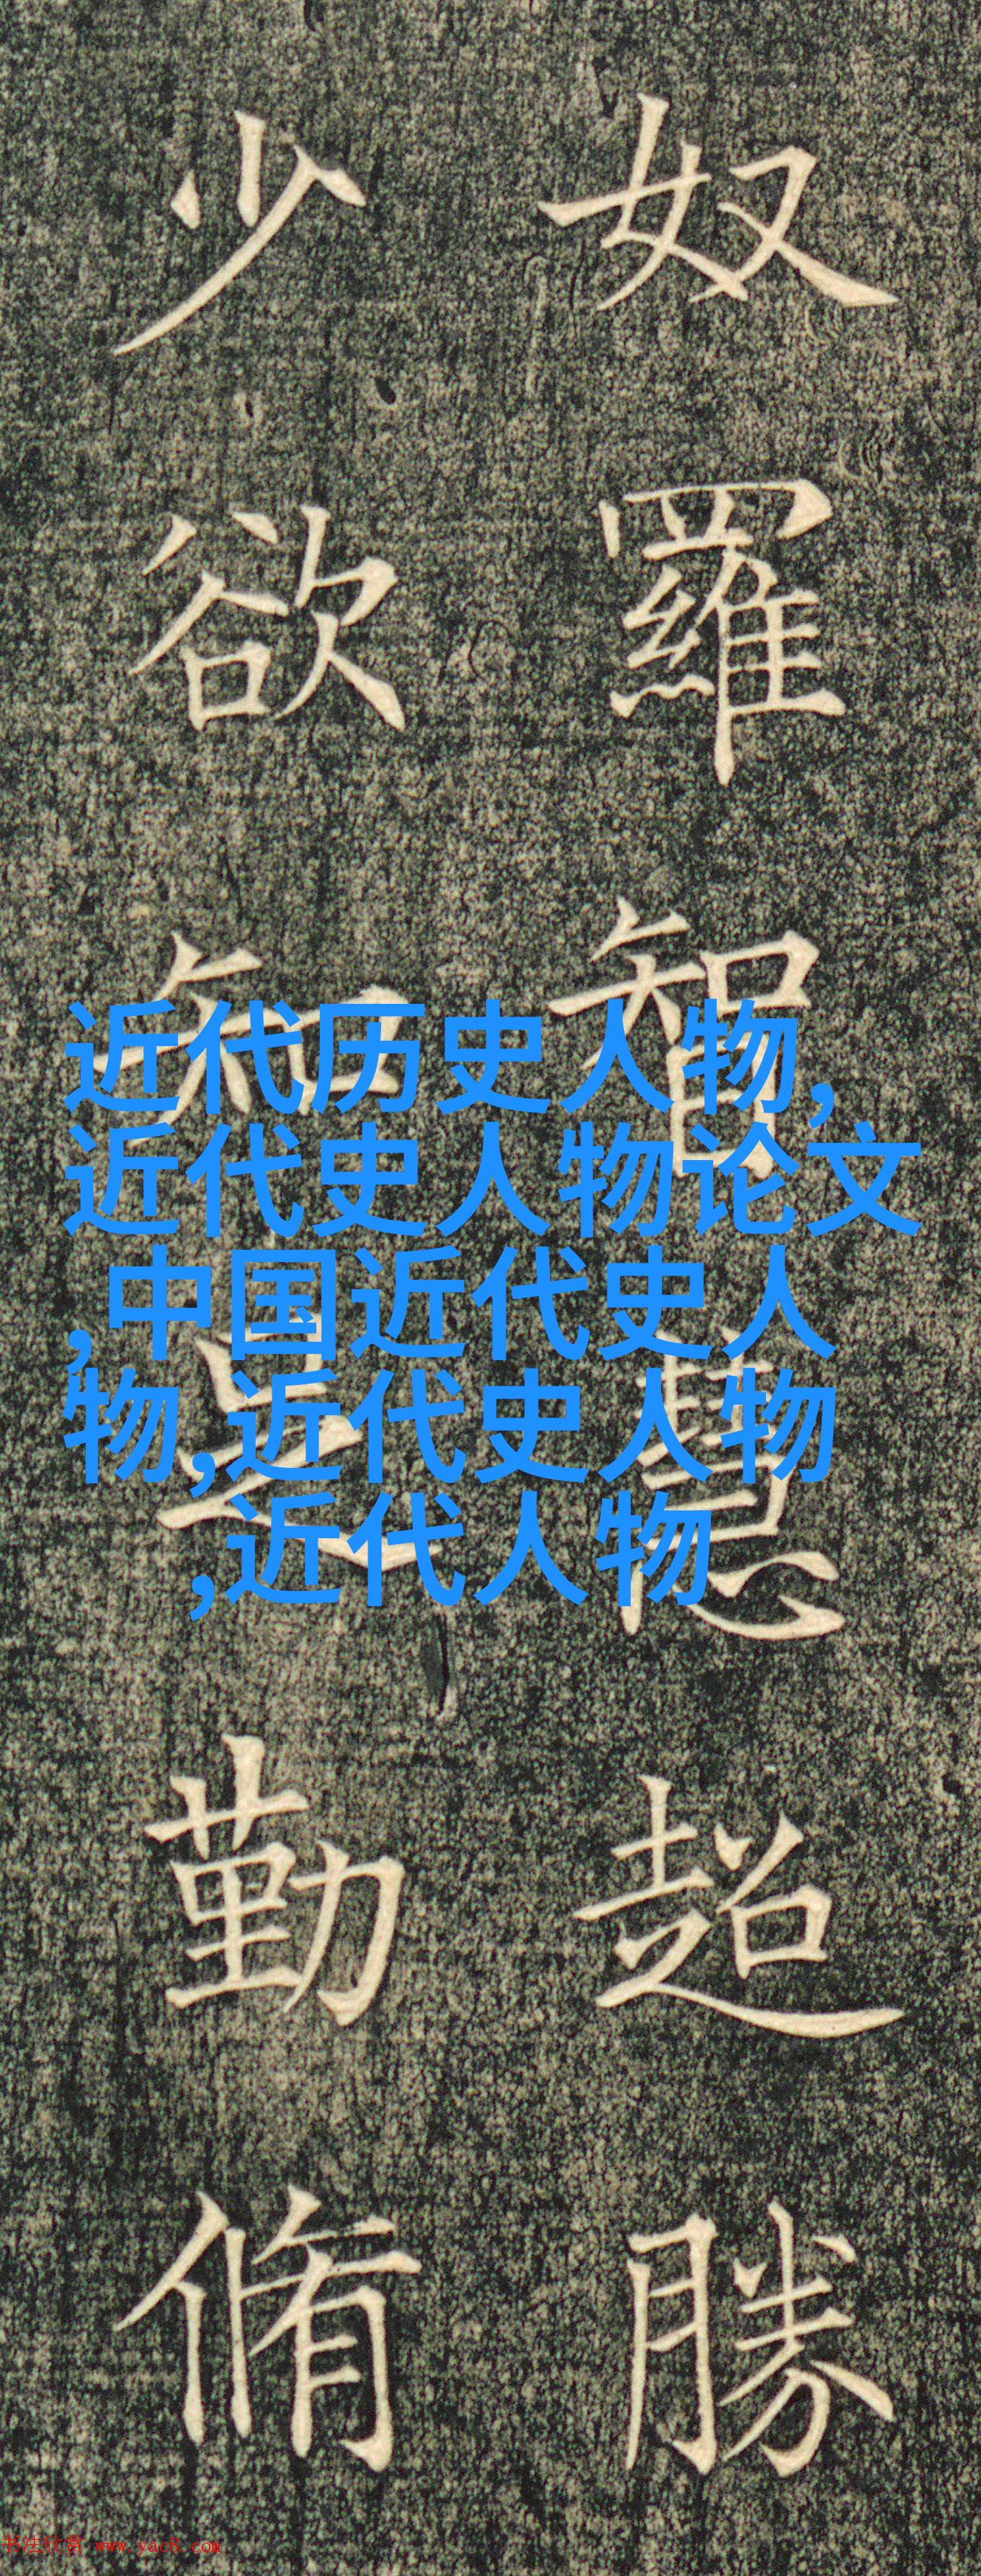 奴羅智慧超勝
少欲知足勤脩
近代历史人物,
近代史人物论文
,中国近代史人
物,近代史人物
,近代人物
书法欣赏 www.yac8.com